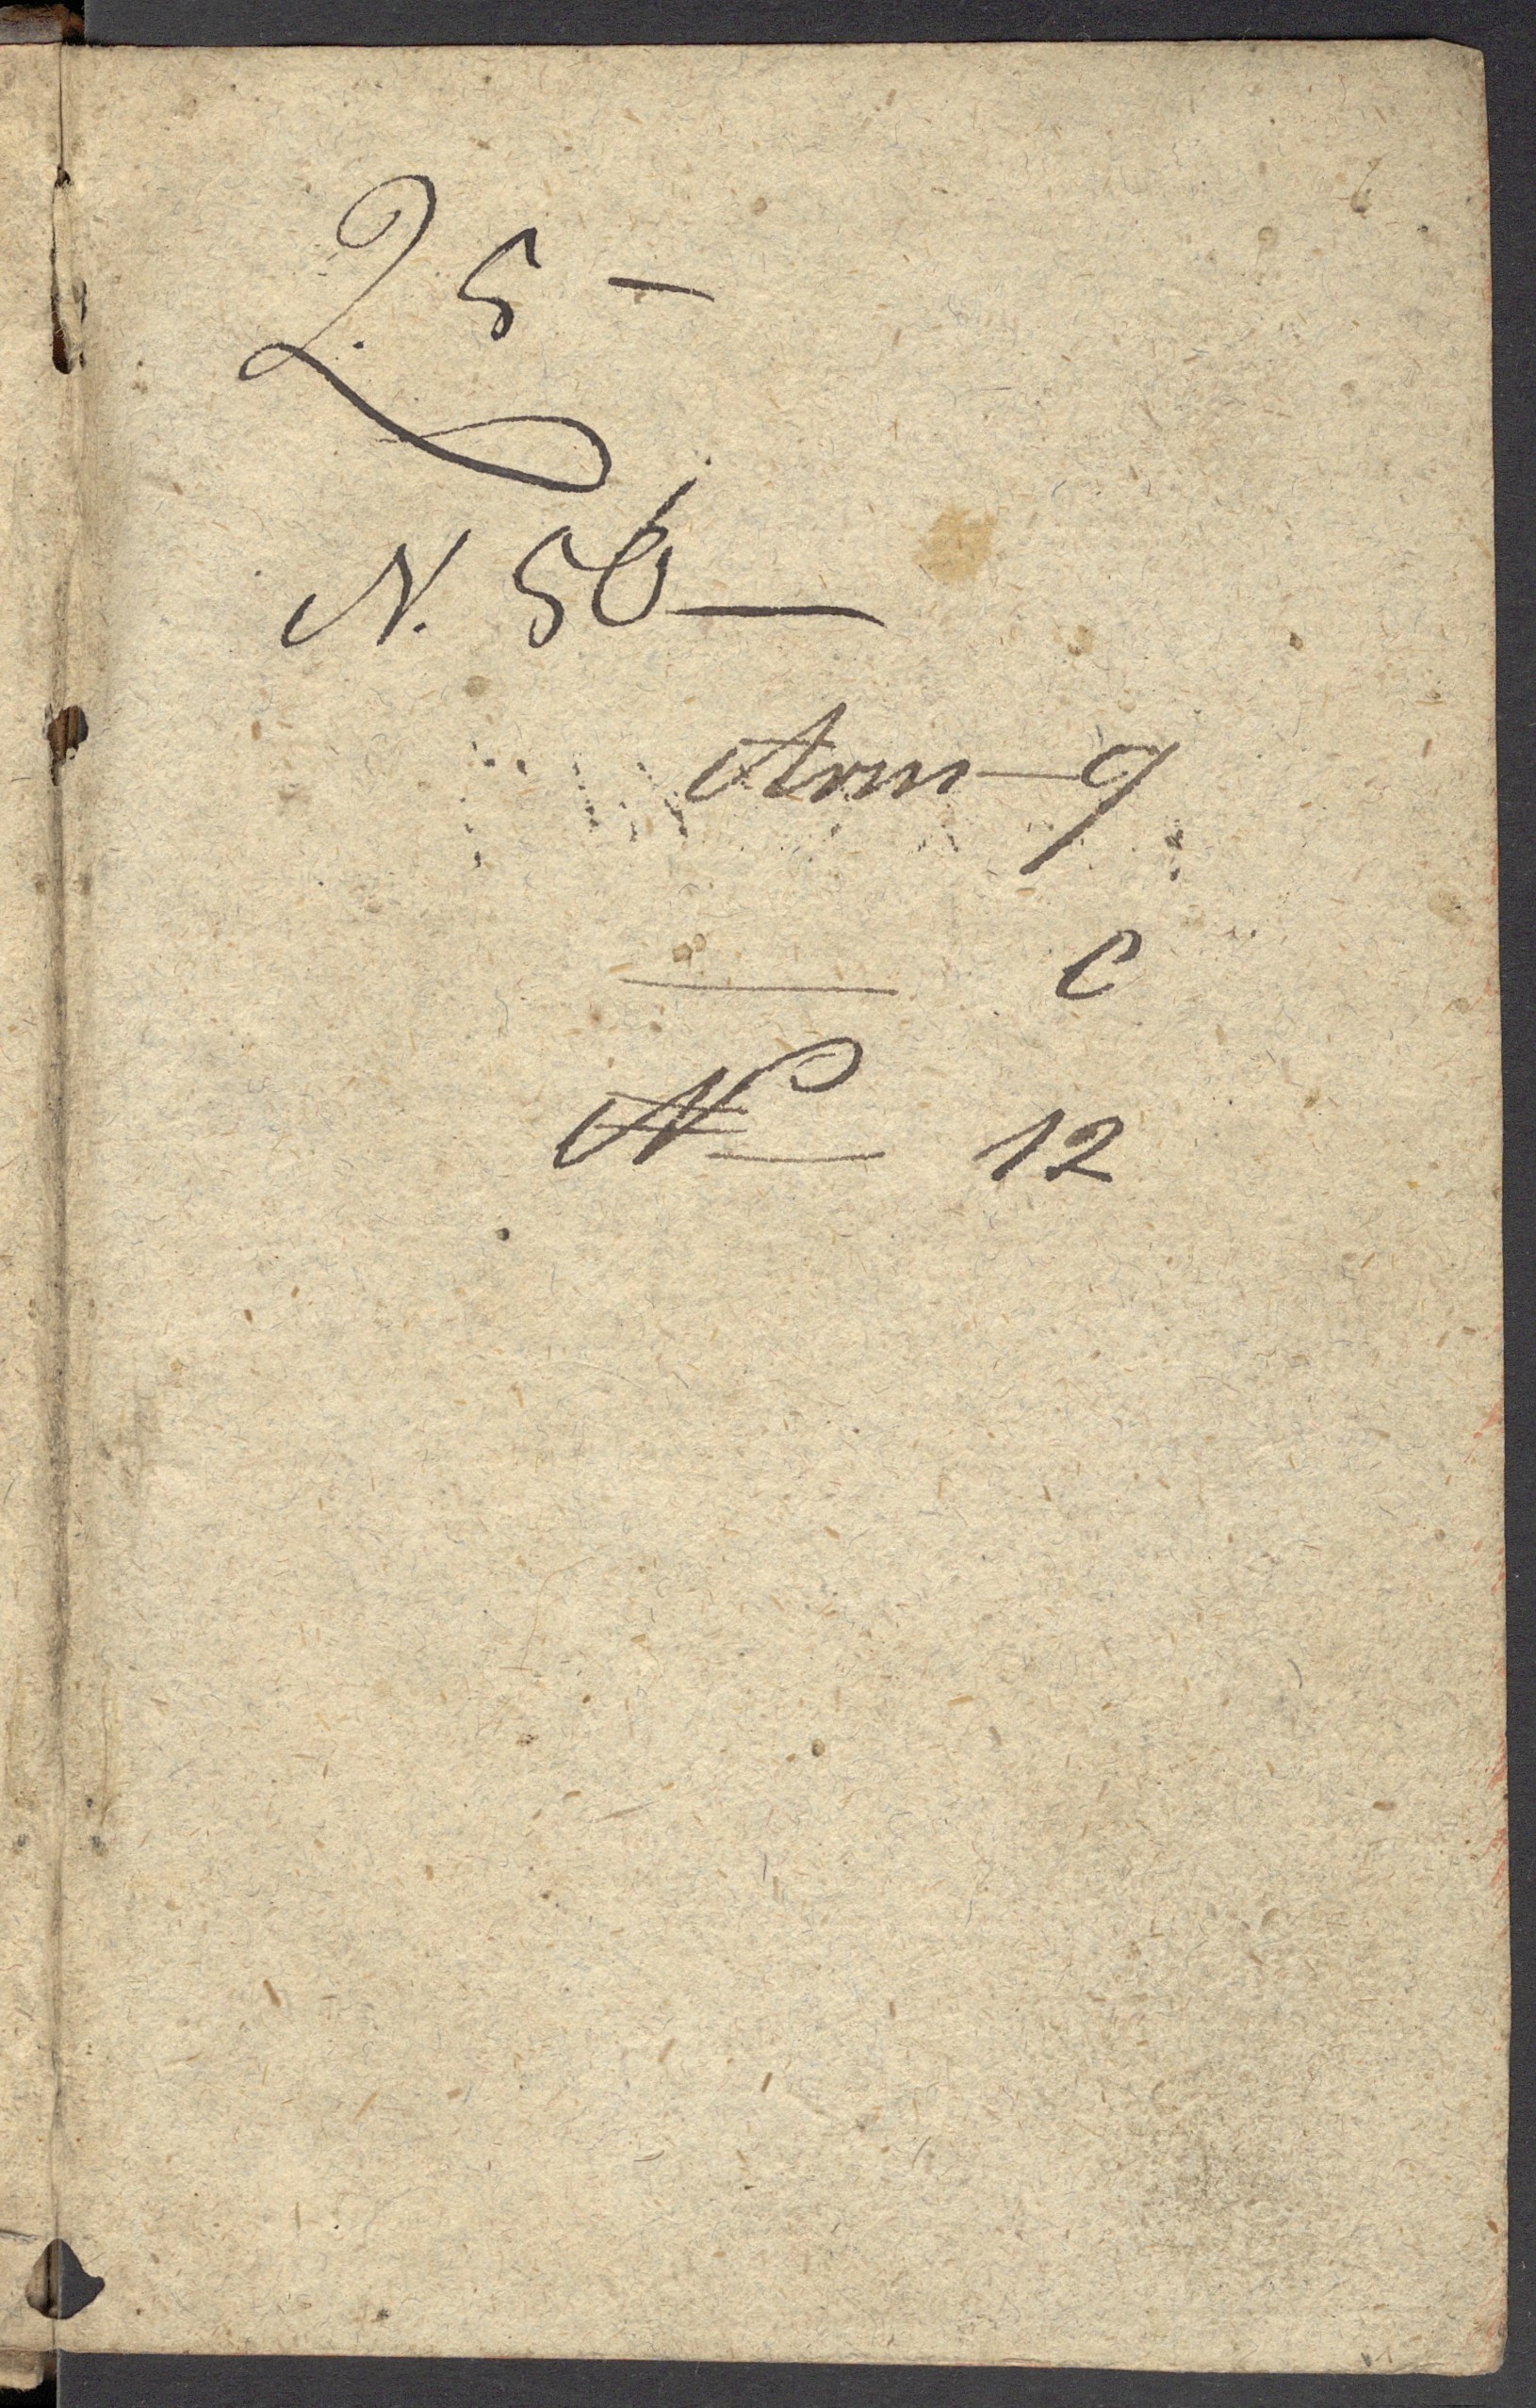 L. 5 —
N. 56 —
Arm — 9
— C
N — 12